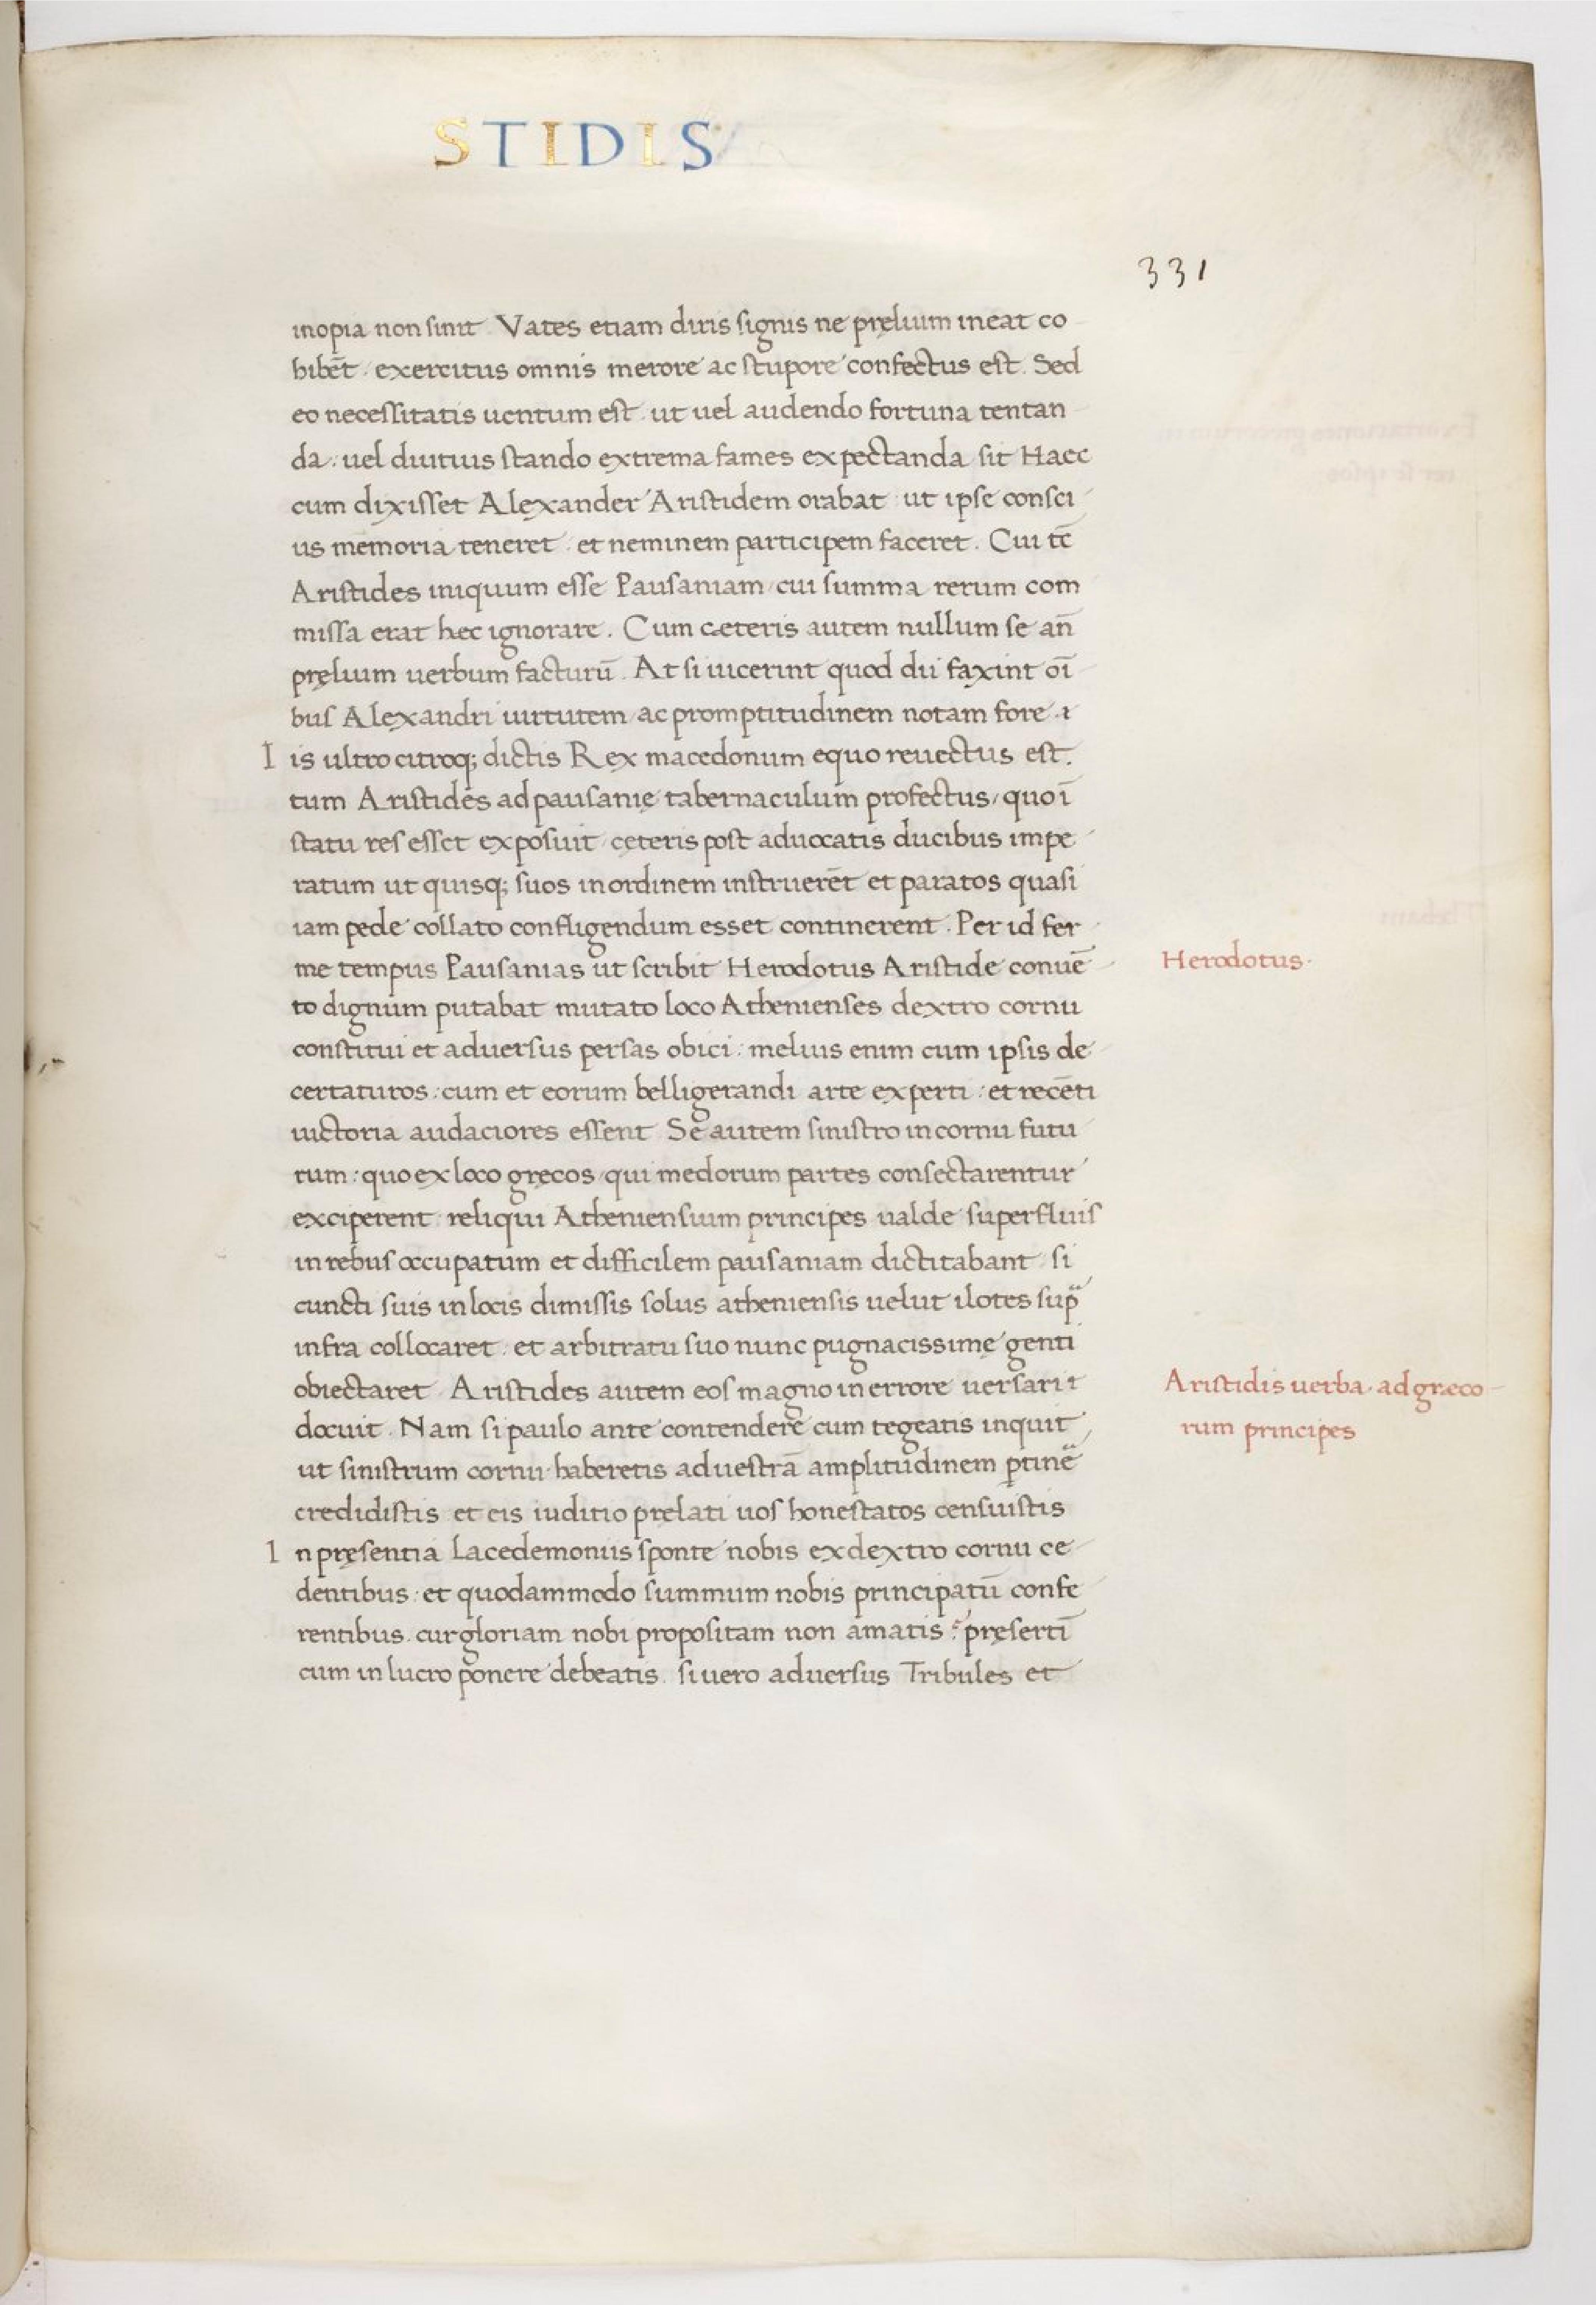 STIDIS
331
inopia non sinit. Vates etiam diris signis ne pręlium ineat co
hibēt. exercitus omnis merore ac stupore confectus est. Sed
eo necessitatis uentum est. ut uel audendo fortuna tentan
da: uel diutius stando extrema fames expectanda sit Haec
cum dixisset Alexander Aristidem orabat ut ipse consci
us memoria teneret. et neminem participem faceret. Cui tc̄
Aristides iniquum esse Pausaniam cui summa rerum com
missa erat hec ignorare. Cum cæteris autem nullum se an̄
pręlium uerbum facturū. At si uicerint quod dii faxint oī
bus Alexandri uirtutem ac promptitudinem notam fore.
I is ultro citroq; dictis Rex macedonum equo reuectus est.
tum Aristides ad pausanię tabernaculum profectus, quo ī
statu res esset exposuit cęteris post aduocatis ducibus impe
ratum ut quisq; suos in ordinem instruerēt et paratos quasi
iam pede collato confligendum esset continerent. Per id fer
me tempus Pausanias ut scribit Herodotus Aristide conuē
Herodotus.
to dignum putabat mutato loco Athenienses dextro cornu
constitui et aduersus persas obici: melius enim cum ipsis de
certaturos: cum et eorum belligerandi arte experti: et recēti
uictoria audaciores essent Se autem sinistro in cornu futu
rum: quo ex loco gręcos, qui medorum partes consectarentur
exciperent. reliqui Atheniensium principes ualde superfluis
in rebus occupatum et difficilem pausaniam dictitabant. si
cuncti suis in locis dimissis solus atheniensis uelut ilotes sup̄
infra collocaret. et arbitratu suo nunc pugnacissimę genti
obiectaret. Aristides autem eos magno in errore uersari
Aristidis uerba ad græco
rum principes
docuit. Nam si paulo ante contendere cum tegeatis inquit
ut sinistrum cornu haberetis ad uestrā amplitudinem ꝑtinē
credidistis et eis iuditio pręlati uos honestatos censuistis
I n pręsentia Lacedemoniis sponte nobis ex dextro cornu ce
dentibus: et quodammodo summum nobis principatū confe
rentibus. cur gloriam nobi propositam non amatis: pręsertī
cum in lucro ponere debeatis. si uero aduersus Tribules et